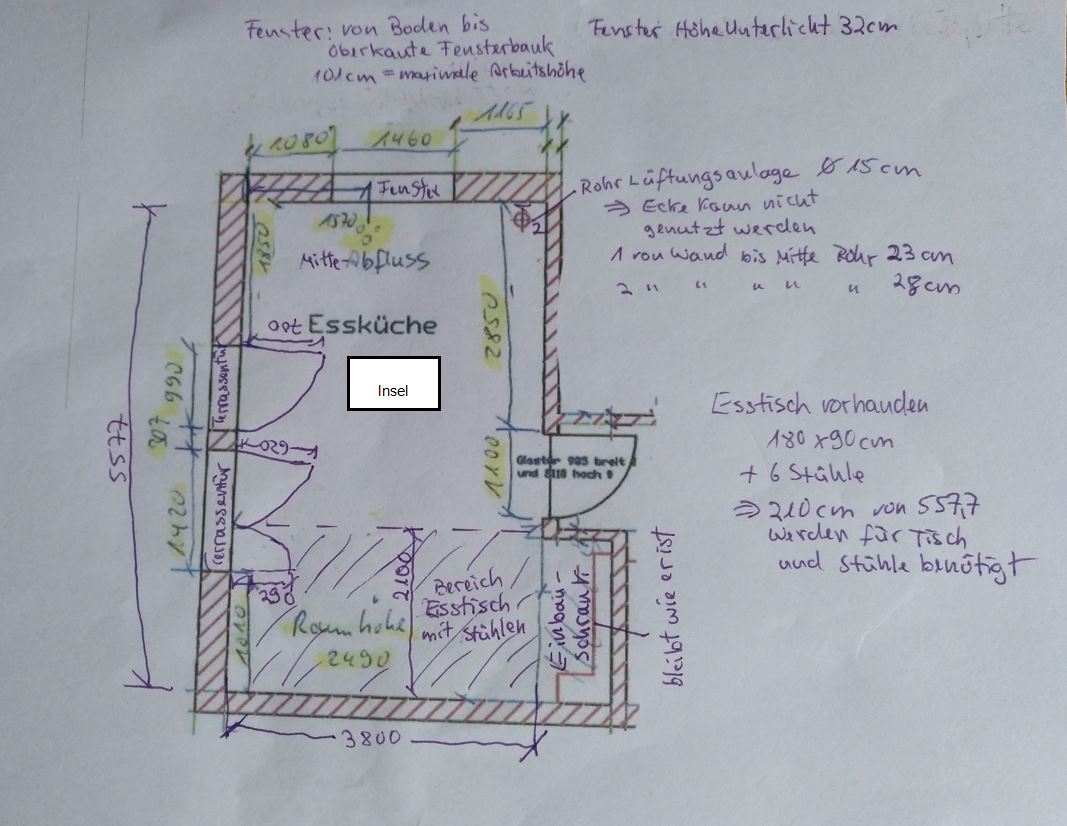 Fenster: von Boden bis
oberkante Fensterbank
101cm = maximale Arbeitshöhe
Fenster Höhe Unterlicht 32cm
1080
1460
1165
Fenster
1570
Mitte-Abfluss
1850
Rohr Lüftungsanlage Ø 15cm
⇒ Ecke kann nicht
genutzt werden
1 von Wand bis Mitte Rohr 23cm
2 " " " " " 28cm
2
700 Essküche
2850
Insel
990
Terrassentür
307
620
5577
1420
Terrassentür
1100
Glastür 985 breit
und 2110 hoch
Esstisch vorhanden
180 x 90cm
+ 6 Stühle
⇒ 210cm von 557,7
werden für Tisch
und Stühle benötigt
290
1010
2100
Raumhöhe
2490
Bereich
Esstisch
mit Stühlen
Einbau-
schrank
bleibt wie er ist
3800